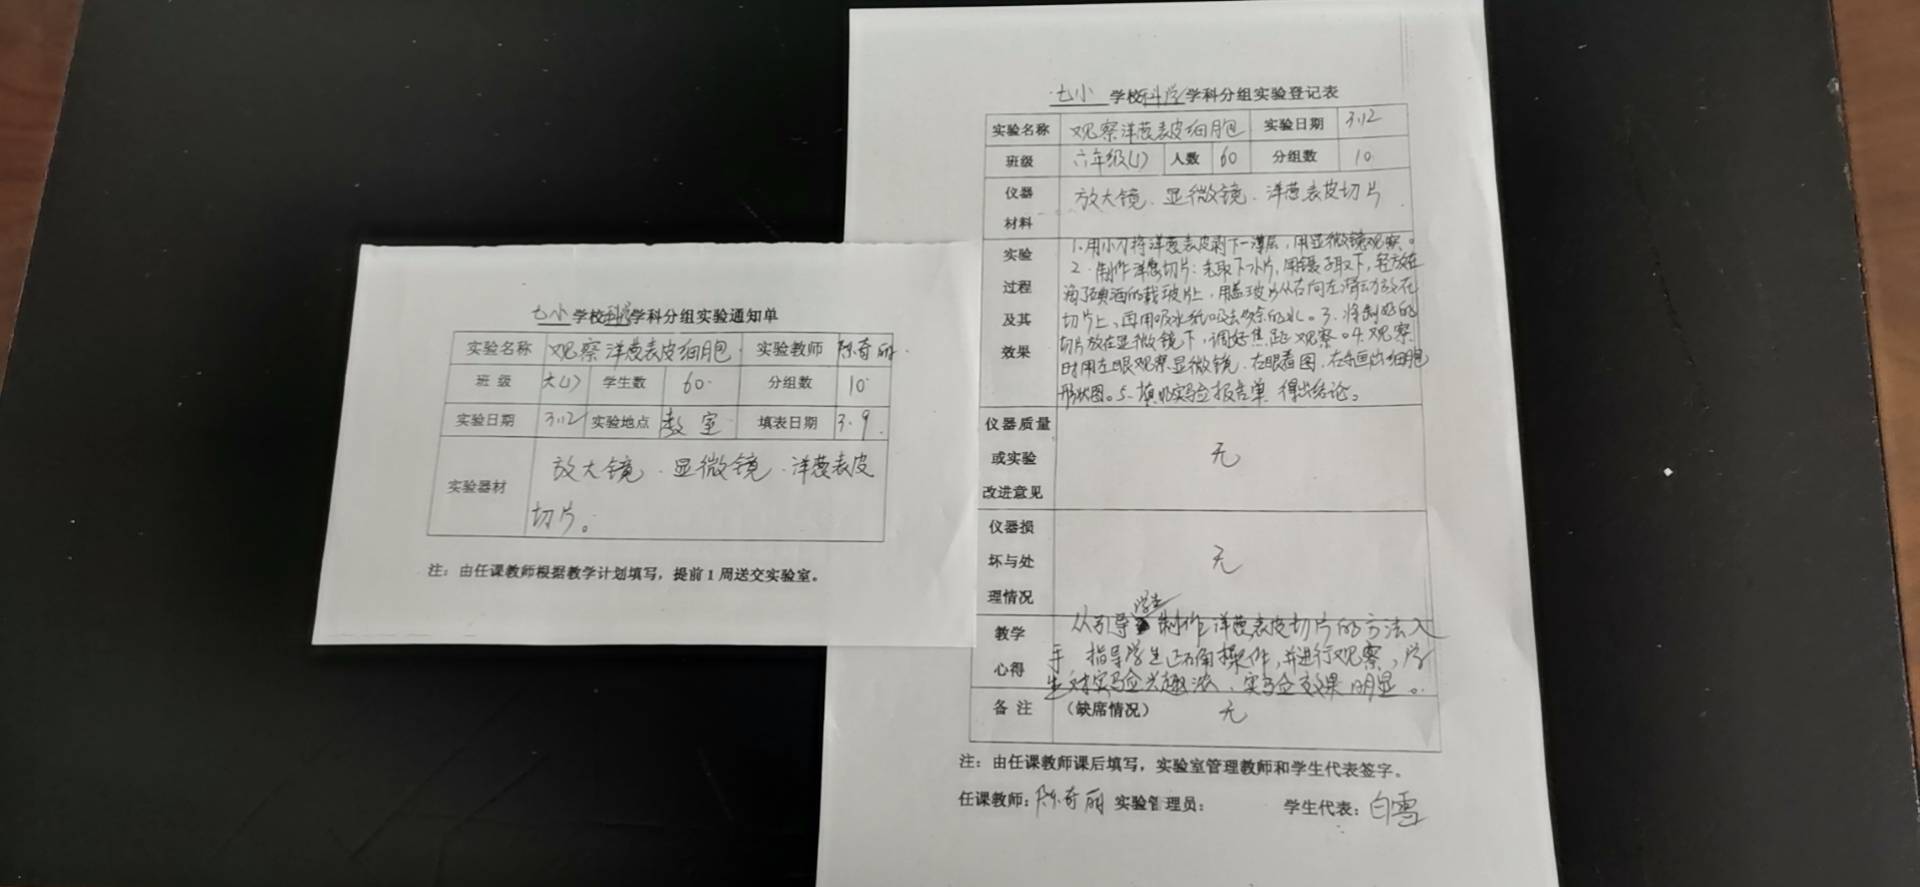 七小 学校科学学科分组实验通知单
实验名称 观察洋葱表皮细胞 实验教师 陈奇丽
班 级 六(1) 学生数 60 分组数 10
实验日期 3.12 实验地点 教室 填表日期 3.9
实验器材 放大镜、显微镜、洋葱表皮
切片。
注：由任课教师根据教学计划填写，提前1周送交实验室。
七小 学校科学学科分组实验登记表
实验名称 观察洋葱表皮细胞 实验日期 3.12
班级 六年级(1) 人数 60 分组数 10
仪器
材料
放大镜、显微镜、洋葱表皮切片
实验
过程
及其
效果
1.用小刀将洋葱表皮剥下一薄层，用显微镜观察。
2.制作洋葱切片：先取下小片，用镊子取下，轻放在
滴了碘酒的载玻片上，用盖玻片从右向左滑动放在
切片上，再用吸水纸吸去多余的水。3.将制好的
切片放在显微镜下，调好焦距观察。4.观察
时用左眼观察显微镜，右眼看图，右手画出细胞
形状图。5.填好实验报告单，得出结论。
仪器质量
或实验
改进意见
无
仪器损
坏与处
理情况
无
教学
心得
从引导学生制作洋葱表皮切片的方法入
手，指导学生正确操作，并进行观察，学
生对实验兴趣浓，实验效果明显。
备 注 （缺席情况） 无
注：由任课教师课后填写，实验室管理教师和学生代表签字。
任课教师：陈奇丽 实验管理员： 学生代表：白雪